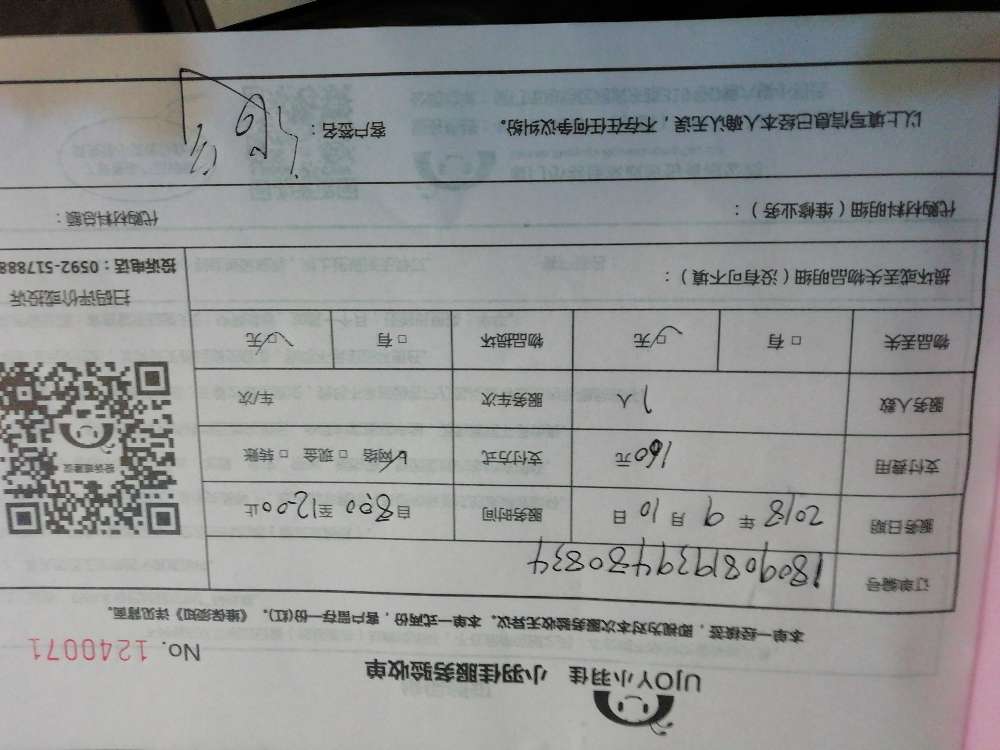 UJOY小羽佳 小羽佳服务验收单
No. 1240071
本单一经接签，即视为对本次服务验收无异议。本单一式两份，客户留存一份(红)。《维保须知》详见背面。
订单编号 180908193948083​4
服务日期 2018 年 9 月 10 日 服务时间 自 8:00 至 12:00 止
支付费用 160 元 支付方式 ☑ 网络 □ 现金 □ 转账
服务人数 1 人 服务车次 车/次
物品丢失 □ 有 ☑ 无 物品损坏 □ 有 ☑ 无
投诉或建议
扫码评价或投诉
投诉电话：0592-517888
损坏或丢失物品明细（没有可不填）：
代购材料明细（维修业务）： 代购材料总额：
以上填写信息已经本人确认无误，不存在任何争议纠纷。 客户签名：